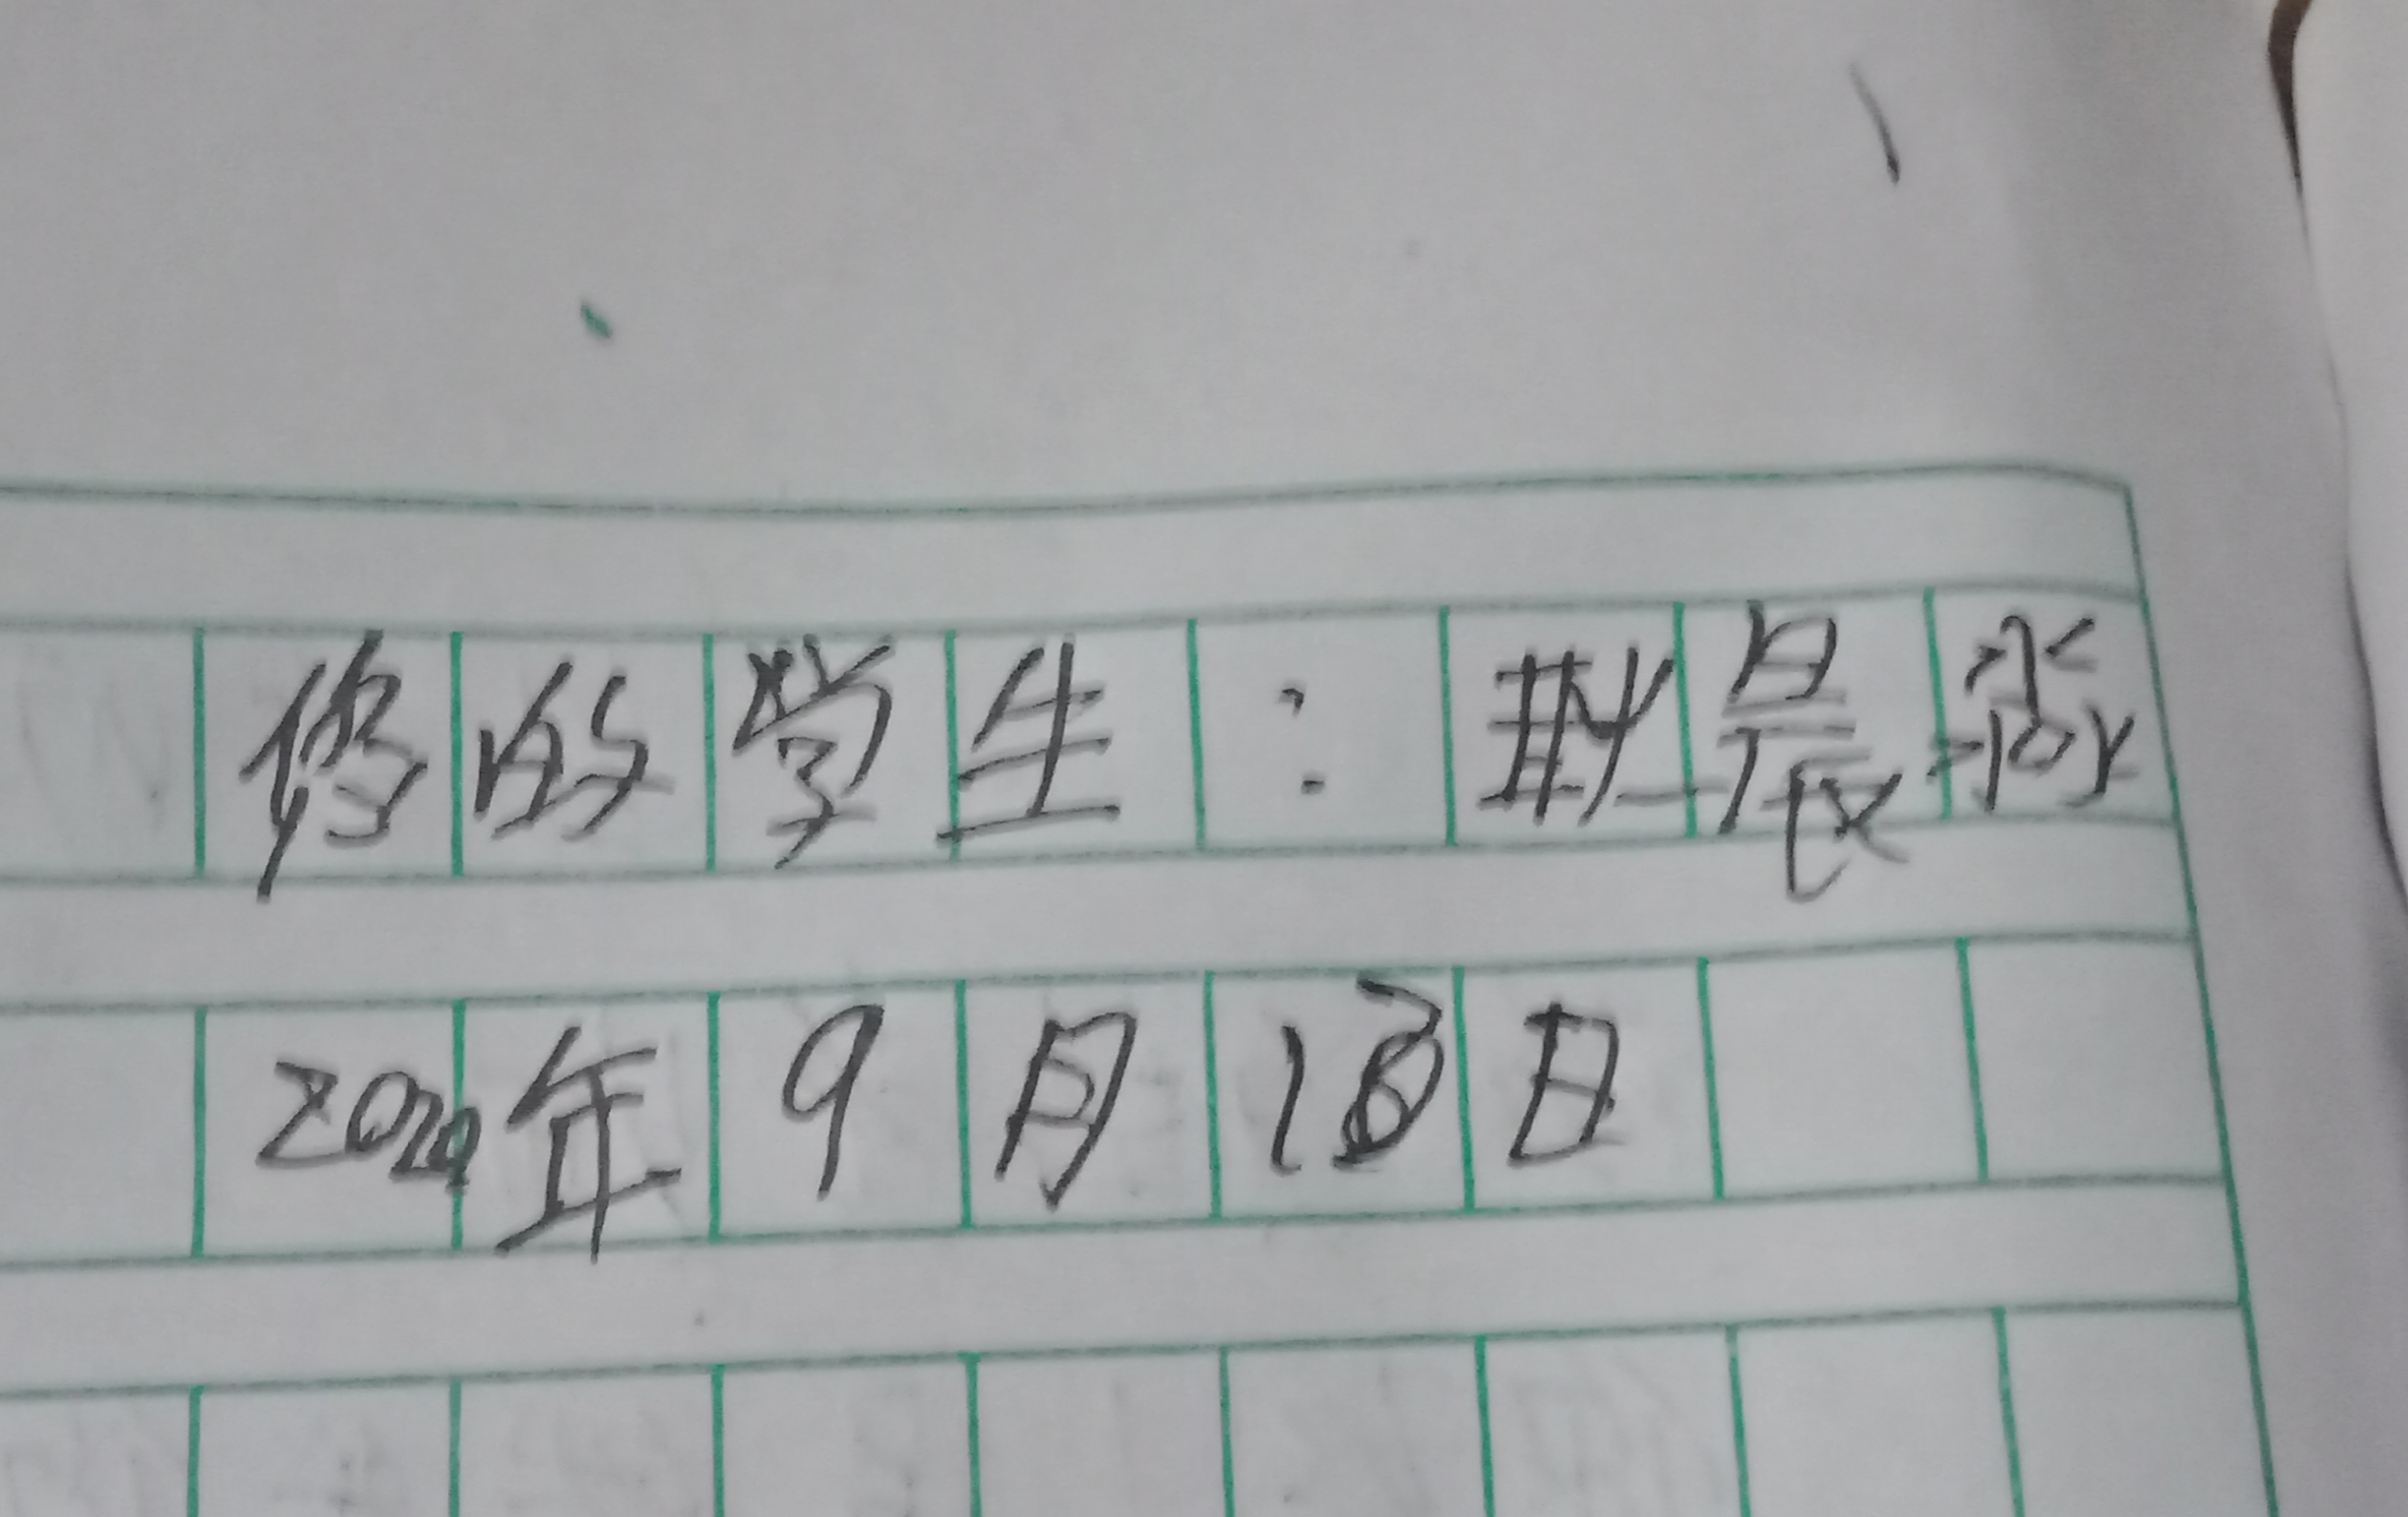 您的学生：晨淼
2020年9月18日